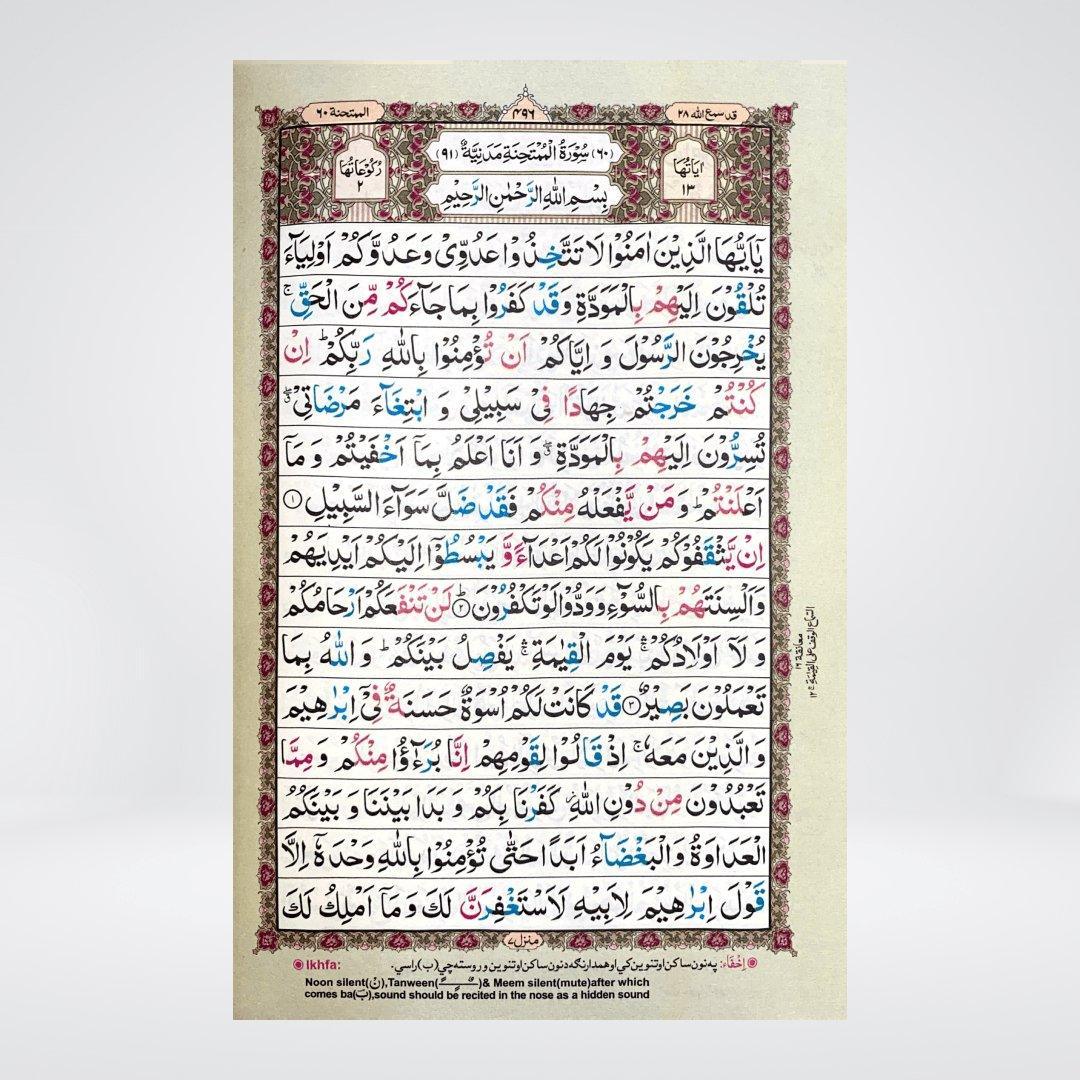 قد سمع الله ٢٨
۴۹۶
الممتحنة ٦٠
اٰيَاتُهَا ١٣
(٦٠) سُوْرَةُ الْمُمْتَحِنَةِ مَدَنِيَّةٌ (٩١)
رُكُوْعَاتُهَا ٢
بِسْمِ اللّٰهِ الرَّحْمٰنِ الرَّحِيْمِ
يٰۤاَيُّهَا الَّذِيْنَ اٰمَنُوْا لَا تَتَّخِذُوْا عَدُوِّيْ وَعَدُوَّكُمْ اَوْلِيَآءَ
تُلْقُوْنَ اِلَيْهِمْ بِالْمَوَدَّةِ وَقَدْ كَفَرُوْا بِمَا جَآءَكُمْ مِّنَ الْحَقِّ ۚ
يُخْرِجُوْنَ الرَّسُوْلَ وَ اِيَّاكُمْ اَنْ تُؤْمِنُوْا بِاللّٰهِ رَبِّكُمْ ؕ اِنْ
كُنْتُمْ خَرَجْتُمْ جِهَادًا فِيْ سَبِيْلِيْ وَ ابْتِغَآءَ مَرْضَاتِيْ ۖ
تُسِرُّوْنَ اِلَيْهِمْ بِالْمَوَدَّةِ ۖ وَ اَنَا اَعْلَمُ بِمَاۤ اَخْفَيْتُمْ وَ مَاۤ
اَعْلَنْتُمْ ؕ وَ مَنْ يَّفْعَلْهُ مِنْكُمْ فَقَدْ ضَلَّ سَوَآءَ السَّبِيْلِ ۝١
اِنْ يَّثْقَفُوْكُمْ يَكُوْنُوْا لَكُمْ اَعْدَآءً وَّ يَبْسُطُوْۤا اِلَيْكُمْ اَيْدِيَهُمْ
وَاَلْسِنَتَهُمْ بِالسُّوْٓءِ وَوَدُّوْا لَوْ تَكْفُرُوْنَ ۝٢ؕ لَنْ تَنْفَعَكُمْ اَرْحَامُكُمْ
وَ لَاۤ اَوْلَادُكُمْ ۛۚ يَوْمَ الْقِيٰمَةِ ۛۚ يَفْصِلُ بَيْنَكُمْ ؕ وَ اللّٰهُ بِمَا
تَعْمَلُوْنَ بَصِيْرٌ ۝٣ قَدْ كَانَتْ لَكُمْ اُسْوَةٌ حَسَنَةٌ فِيْۤ اِبْرٰهِيْمَ
وَ الَّذِيْنَ مَعَهٗ ۚ اِذْ قَالُوْا لِقَوْمِهِمْ اِنَّا بُرَءٰٓؤُا مِنْكُمْ وَ مِمَّا
تَعْبُدُوْنَ مِنْ دُوْنِ اللّٰهِ ز كَفَرْنَا بِكُمْ وَ بَدَا بَيْنَنَا وَ بَيْنَكُمُ
الْعَدَاوَةُ وَ الْبَغْضَآءُ اَبَدًا حَتّٰى تُؤْمِنُوْا بِاللّٰهِ وَحْدَهٗۤ اِلَّا
قَوْلَ اِبْرٰهِيْمَ لِاَبِيْهِ لَاَسْتَغْفِرَنَّ لَكَ وَ مَاۤ اَمْلِكُ لَكَ
منزل ٧
اِخْفَاء: په نون ساکن او تنوین کي او همدارنگه د نون ساکن او تنوین و روسته چي (ب) راسي.
Ikhfa:
Noon silent(نْ),Tanween(ـًـٍـٌ)& Meem silent(mute)after which
comes ba(بَ),sound should be recited in the nose as a hidden sound